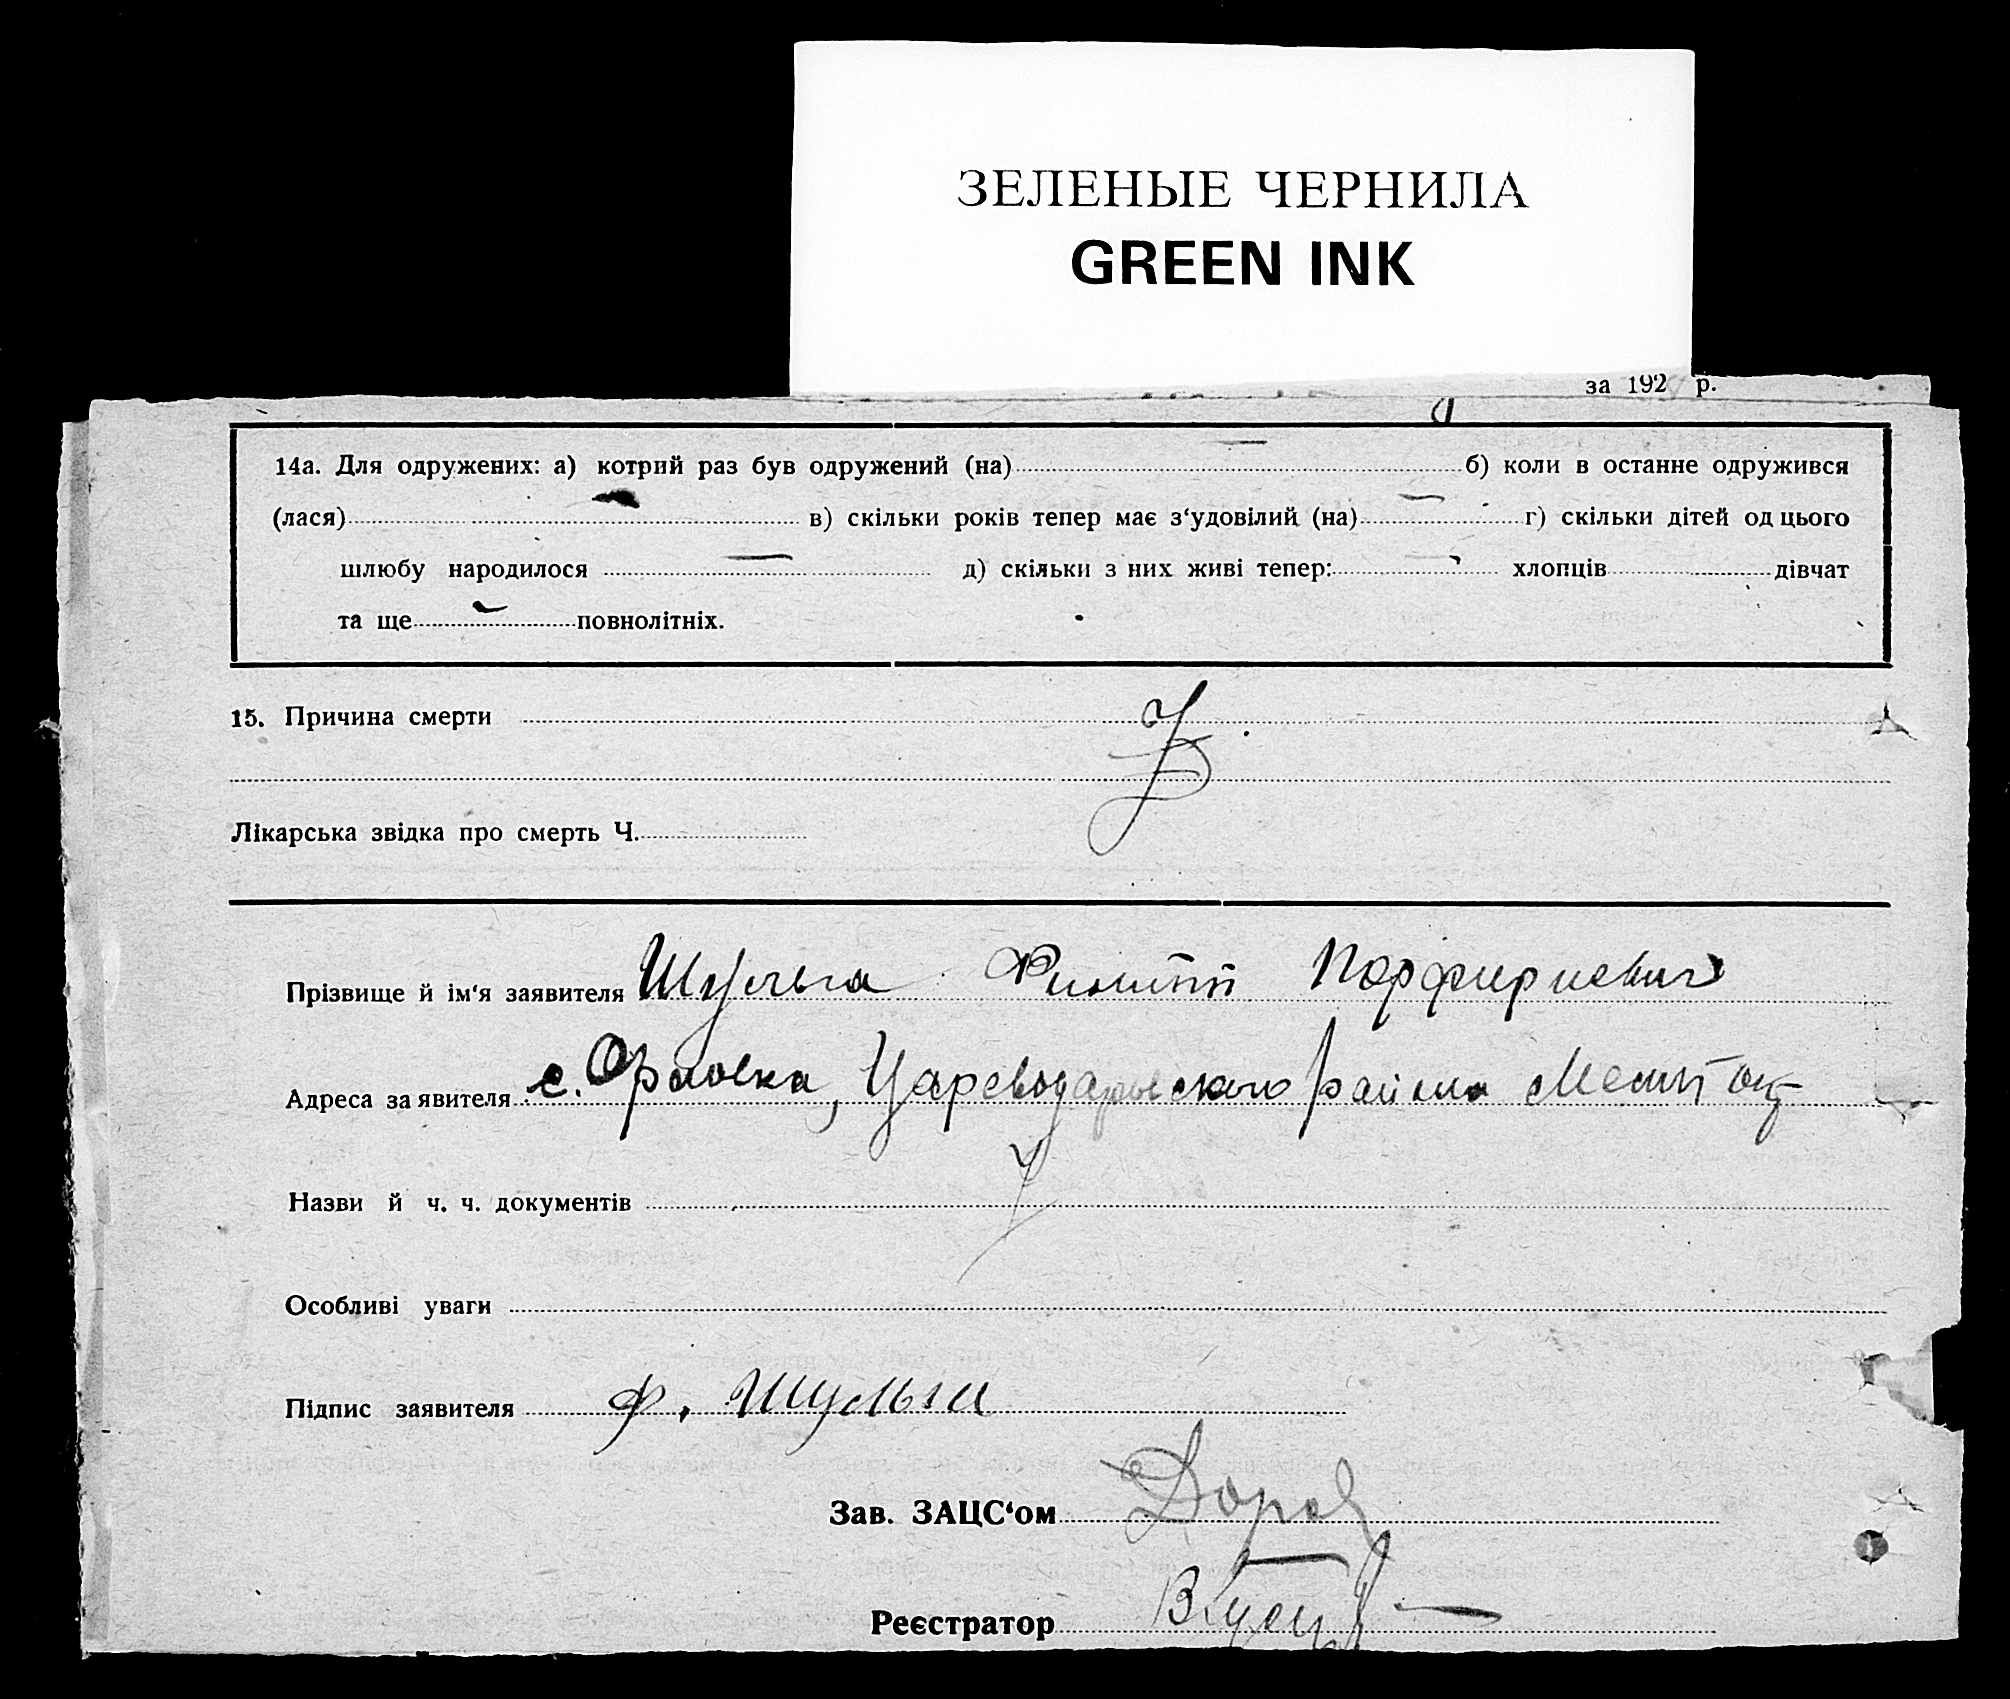 ЗЕЛЕНЫЕ ЧЕРНИЛА
GREEN INK
за 192 р.
14а. Для одружених: а) котрий раз був одружений (на) б) коли в останне одружився
(лася) в) скільки років тепер має з‘удовілий (на) г) скільки дітей од цього
шлюбу народилося д) скільки з них живі тепер: хлопців дівчат
та ще повнолітніх.
15. Причина смерти
Лікарська звідка про смерть Ч.
Прізвище й ім‘я заявителя Шульга Филипп Порфириевич
Адреса заявителя с. Орловка, Цареводаровского района Мелит окр
Назви й ч. ч. документів
Особливі уваги
Підпис заявителя Ф. Шульга
Зав. ЗАЦС‘ом
Реєстратор